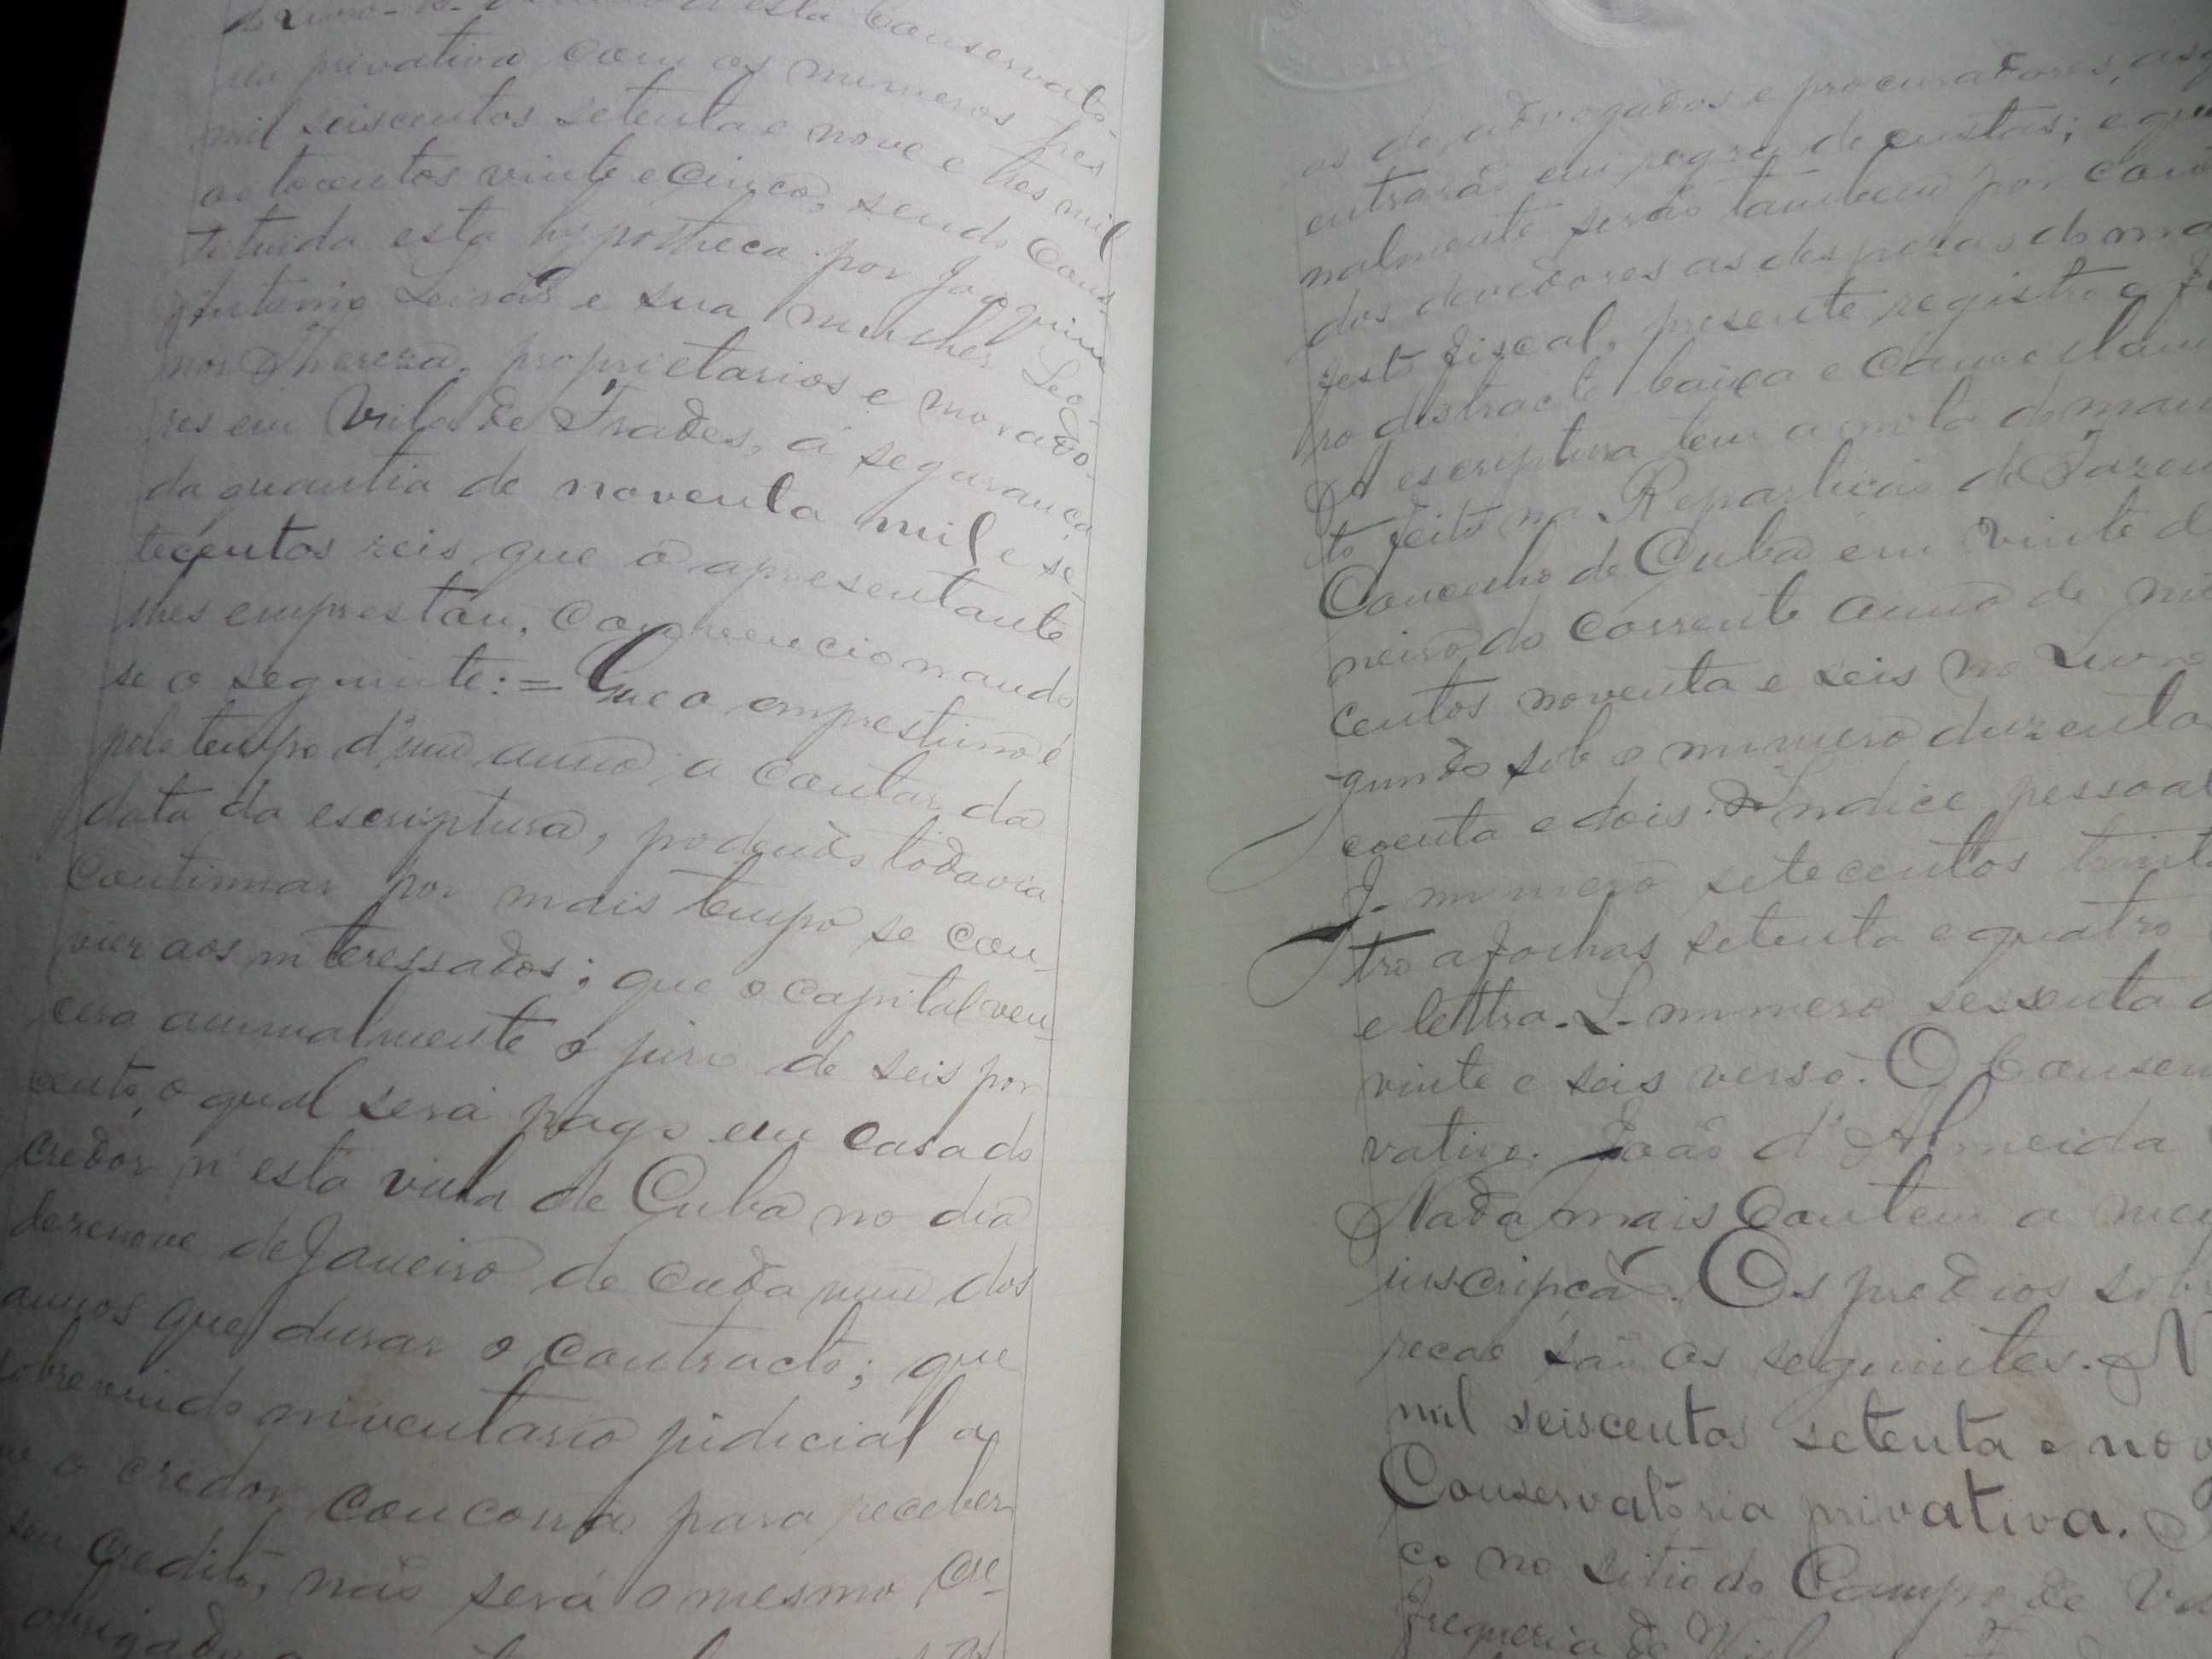 d'esta Conservato-
ria privativa com os numeros tres
mil seiscentos setenta e nove e tres mil
oitocentos vinte e cinco, sendo cons-
tituida esta hypotheca por Joaquim
Antonio Leirão e sua mulher Leo-
nor Thereza, proprietarios e morado-
res em Villa de Frades, á segurança
da quantia de noventa mil e se-
tecentos reis que o apresentante
lhes emprestou, convencionando
se o seguinte: = Que o emprestimo é
pelo tempo d'um anno a contar da
data da escriptura, podendo todavia
continuar por mais tempo se con-
vier aos interessados; que o capital ven-
cerá annualmente o juro de seis por
cento, o qual será pago em casa do
credor n'esta villa de Cuba no dia
dezenove de Janeiro de cada um dos
annos que durar o contracto; que
sobrevindo inventario judicial a
o credor concorra para receber
seu credito, não será o mesmo cre-
obrigado a
os de advogados e procuradores, as
entrarão em regra de custas; e que
nalmente serão tambem por conta
dos devedores as despezas do ma
festo fiscal, presente registro e
ro distracte baixa e cancellam
A escriptura tem a nota do man
to feito na Repartição de Fazen
Concelho de Cuba em vinte de
neiro do corrente anno de mil
centos noventa e seis no Livro
gundo sob o numero duzentos
coenta e dois. Indice pessoal
J- numero setecentos trinta
tro a folhas setenta e quatro
e lettra- L- numero sessenta
vinte e seis verso. O Conser
vativo. João d'Almeida
Nada mais contem a
inscripção. Os predios sob
recae são os seguintes. N
mil seiscentos setenta e nov
Conservatoria privativa.
co no sitio do Campo de
freguezia de